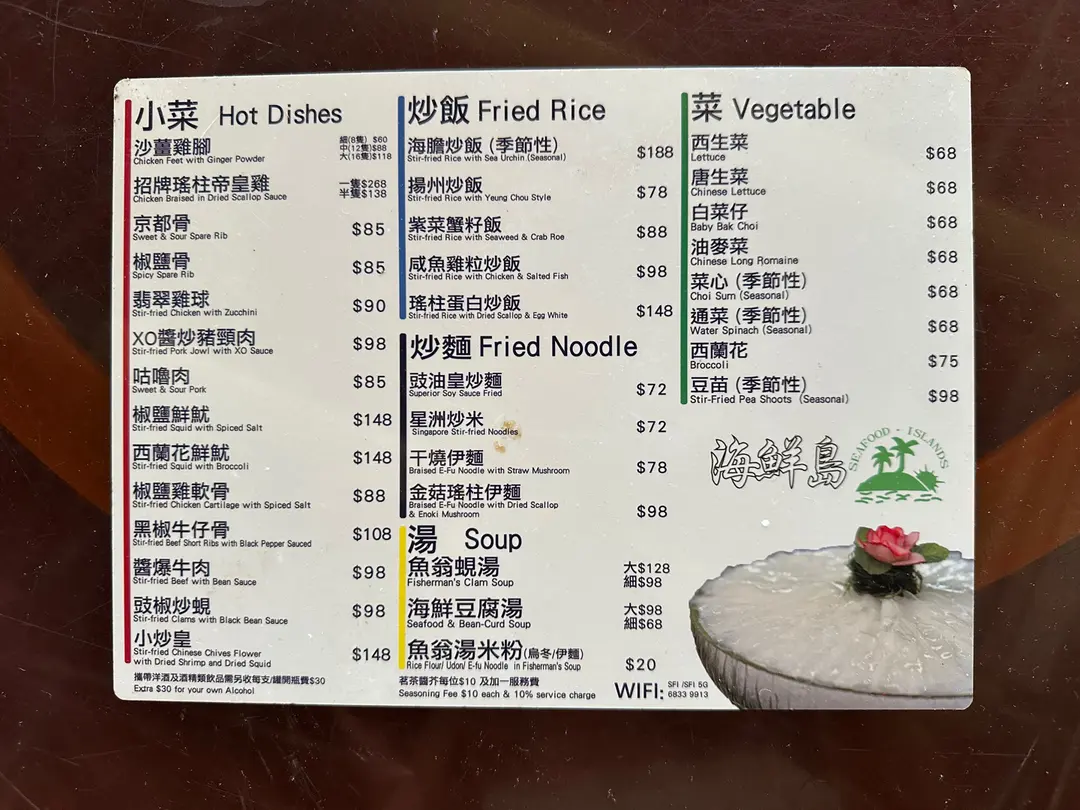 小菜 Hot Dishes
沙薑雞腳 細(8隻) $60
中(12隻)$88
Chicken Feet with Ginger Powder 大(16隻)$118
招牌瑤柱帝皇雞 一隻$268
Chicken Braised in Dried Scallop Sauce 半隻$138
京都骨 $85
Sweet & Sour Spare Rib
椒鹽骨 $85
Spicy Spare Rib
翡翠雞球 $90
Stir-fried Chicken with Zucchini
XO醬炒豬頸肉 $98
Stir-fried Pork Jowl with XO Sauce
咕嚕肉 $85
Sweet & Sour Pork
椒鹽鮮魷 $148
Stir-fried Squid with Spiced Salt
西蘭花鮮魷 $148
Stir-fried Squid with Broccoli
椒鹽雞軟骨 $88
Stir-fried Chicken Cartilage with Spiced Salt
黑椒牛仔骨 $108
Stir-fried Beef Short Ribs with Black Pepper Sauced
醬爆牛肉 $98
Stir-fried Beef with Bean Sauce
豉椒炒蜆 $98
Stir-fried Clams with Black Bean Sauce
小炒皇 $148
Stir-fried Chinese Chives Flower
with Dried Shrimp and Dried Squid
攜帶洋酒及酒精類飲品需另收每支/罐開瓶費$30
Extra $30 for your own Alcohol
炒飯 Fried Rice
海膽炒飯 (季節性) $188
Stir-fried Rice with Sea Urchin (Seasonal)
揚州炒飯 $78
Stir-fried Rice with Yeung Chou Style
紫菜蟹籽飯 $88
Stir-fried Rice with Seaweed & Crab Roe
咸魚雞粒炒飯 $98
Stir-fried Rice with Chicken & Salted Fish
瑤柱蛋白炒飯 $148
Stir-fried Rice with Dried Scallop & Egg White
炒麵 Fried Noodle
豉油皇炒麵 $72
Superior Soy Sauce Fried
星洲炒米 $72
Singapore Stir-fried Noodles
干燒伊麵 $78
Braised E-Fu Noodle with Straw Mushroom
金菇瑤柱伊麵 $98
Braised E-Fu Noodle with Dried Scallop
& Enoki Mushroom
湯 Soup
魚翁蜆湯 大$128
Fisherman's Clam Soup 細$98
海鮮豆腐湯 大$98
Seafood & Bean-Curd Soup 細$68
魚翁湯米粉(烏冬/伊麵) $20
Rice Flour/ Udon/ E-fu Noodle in Fisherman's Soup
茗茶醬芥每位$10 及加一服務費
Seasoning Fee $10 each & 10% service charge
WIFI: SFI /SFI 5G
6833 9913
菜 Vegetable
西生菜 $68
Lettuce
唐生菜 $68
Chinese Lettuce
白菜仔 $68
Baby Bak Choi
油麥菜 $68
Chinese Long Romaine
菜心 (季節性) $68
Choi Sum (Seasonal)
通菜 (季節性) $68
Water Spinach (Seasonal)
西蘭花 $75
Broccoli
豆苗 (季節性) $98
Stir-Fried Pea Shoots (Seasonal)
海鮮島
SEAFOOD · ISLANDS